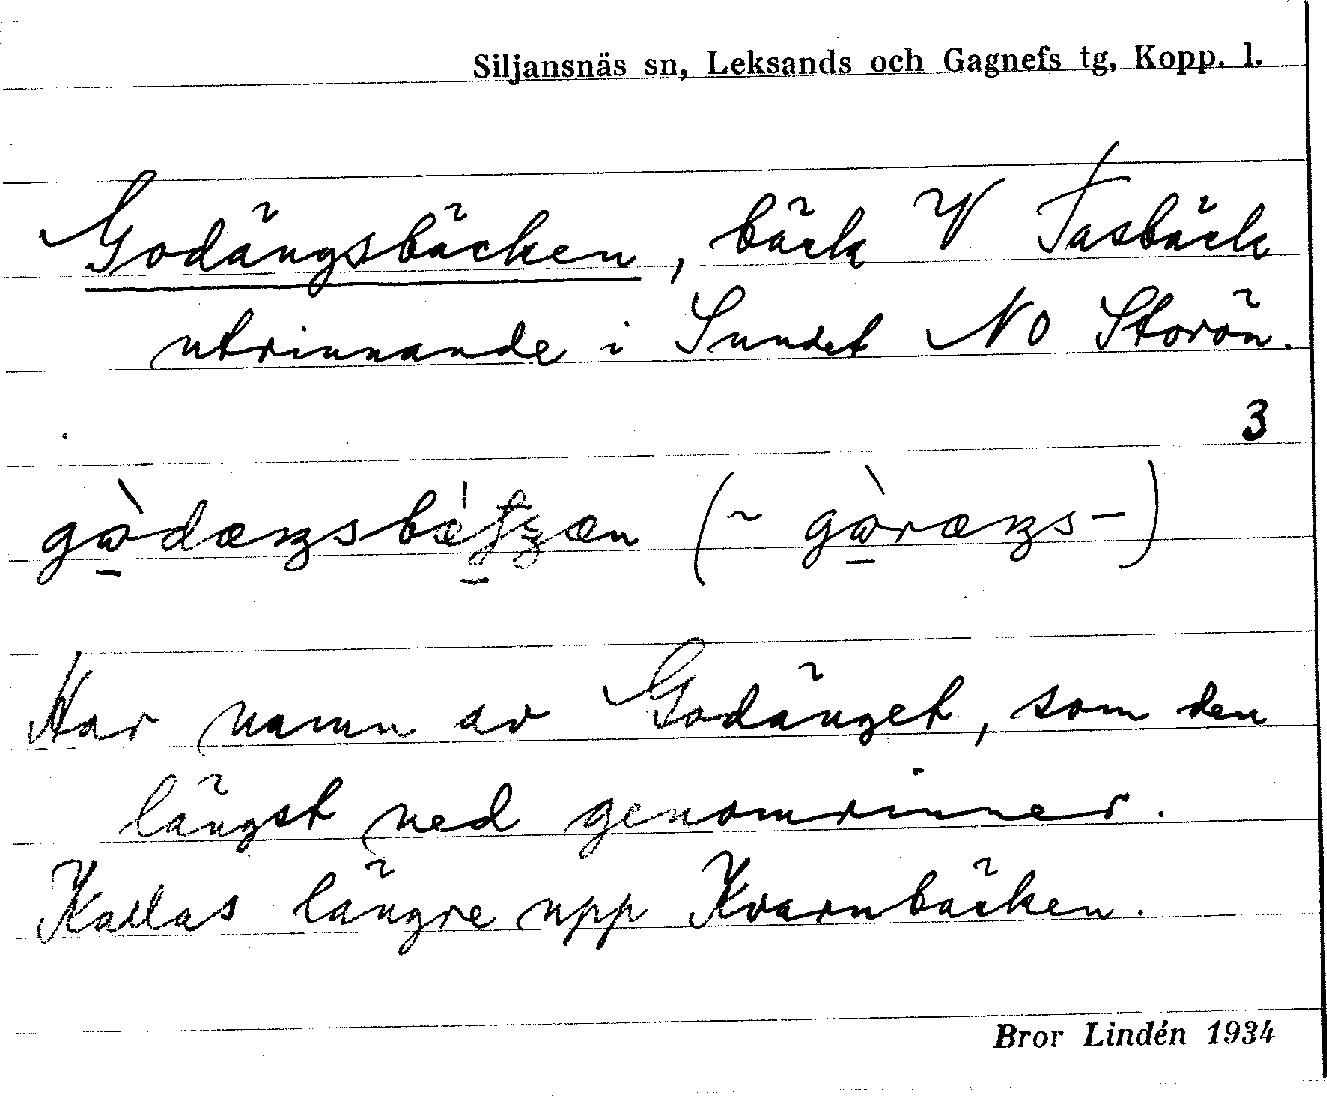 Siljansnäs sn, Leksands och Gagnefs tg, Kopp. l.
Godängsbäcken, bäck V Fasbäck
utrinnande i Sundet NO Storön.
3
(~ -)
Har namn av Godänget, som den
längst ned genomrinner.
Kallas längre upp Kvarnbäcken.
Bror Lindén 1934